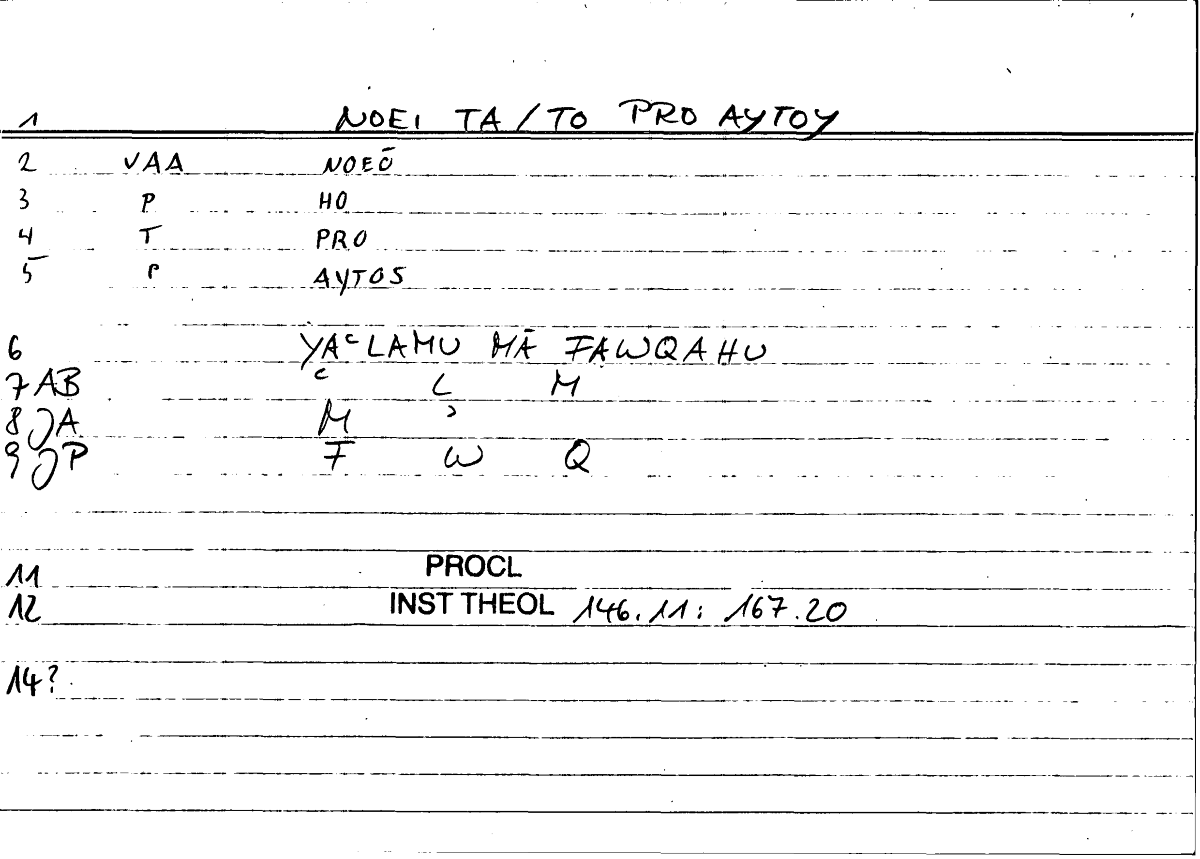 1 NOEI TA / TO PRO AYTOY
2 VAA NOEŌ
3 P HO
4 T PRO
5 P AYTOS
6 YAᶜLAMU MĀ FAWQAHU
7 AB ᶜ L M
8 JA M ʾ
9 JP F W Q
11 PROCL
12 INST THEOL 146.11: 167.20
14?